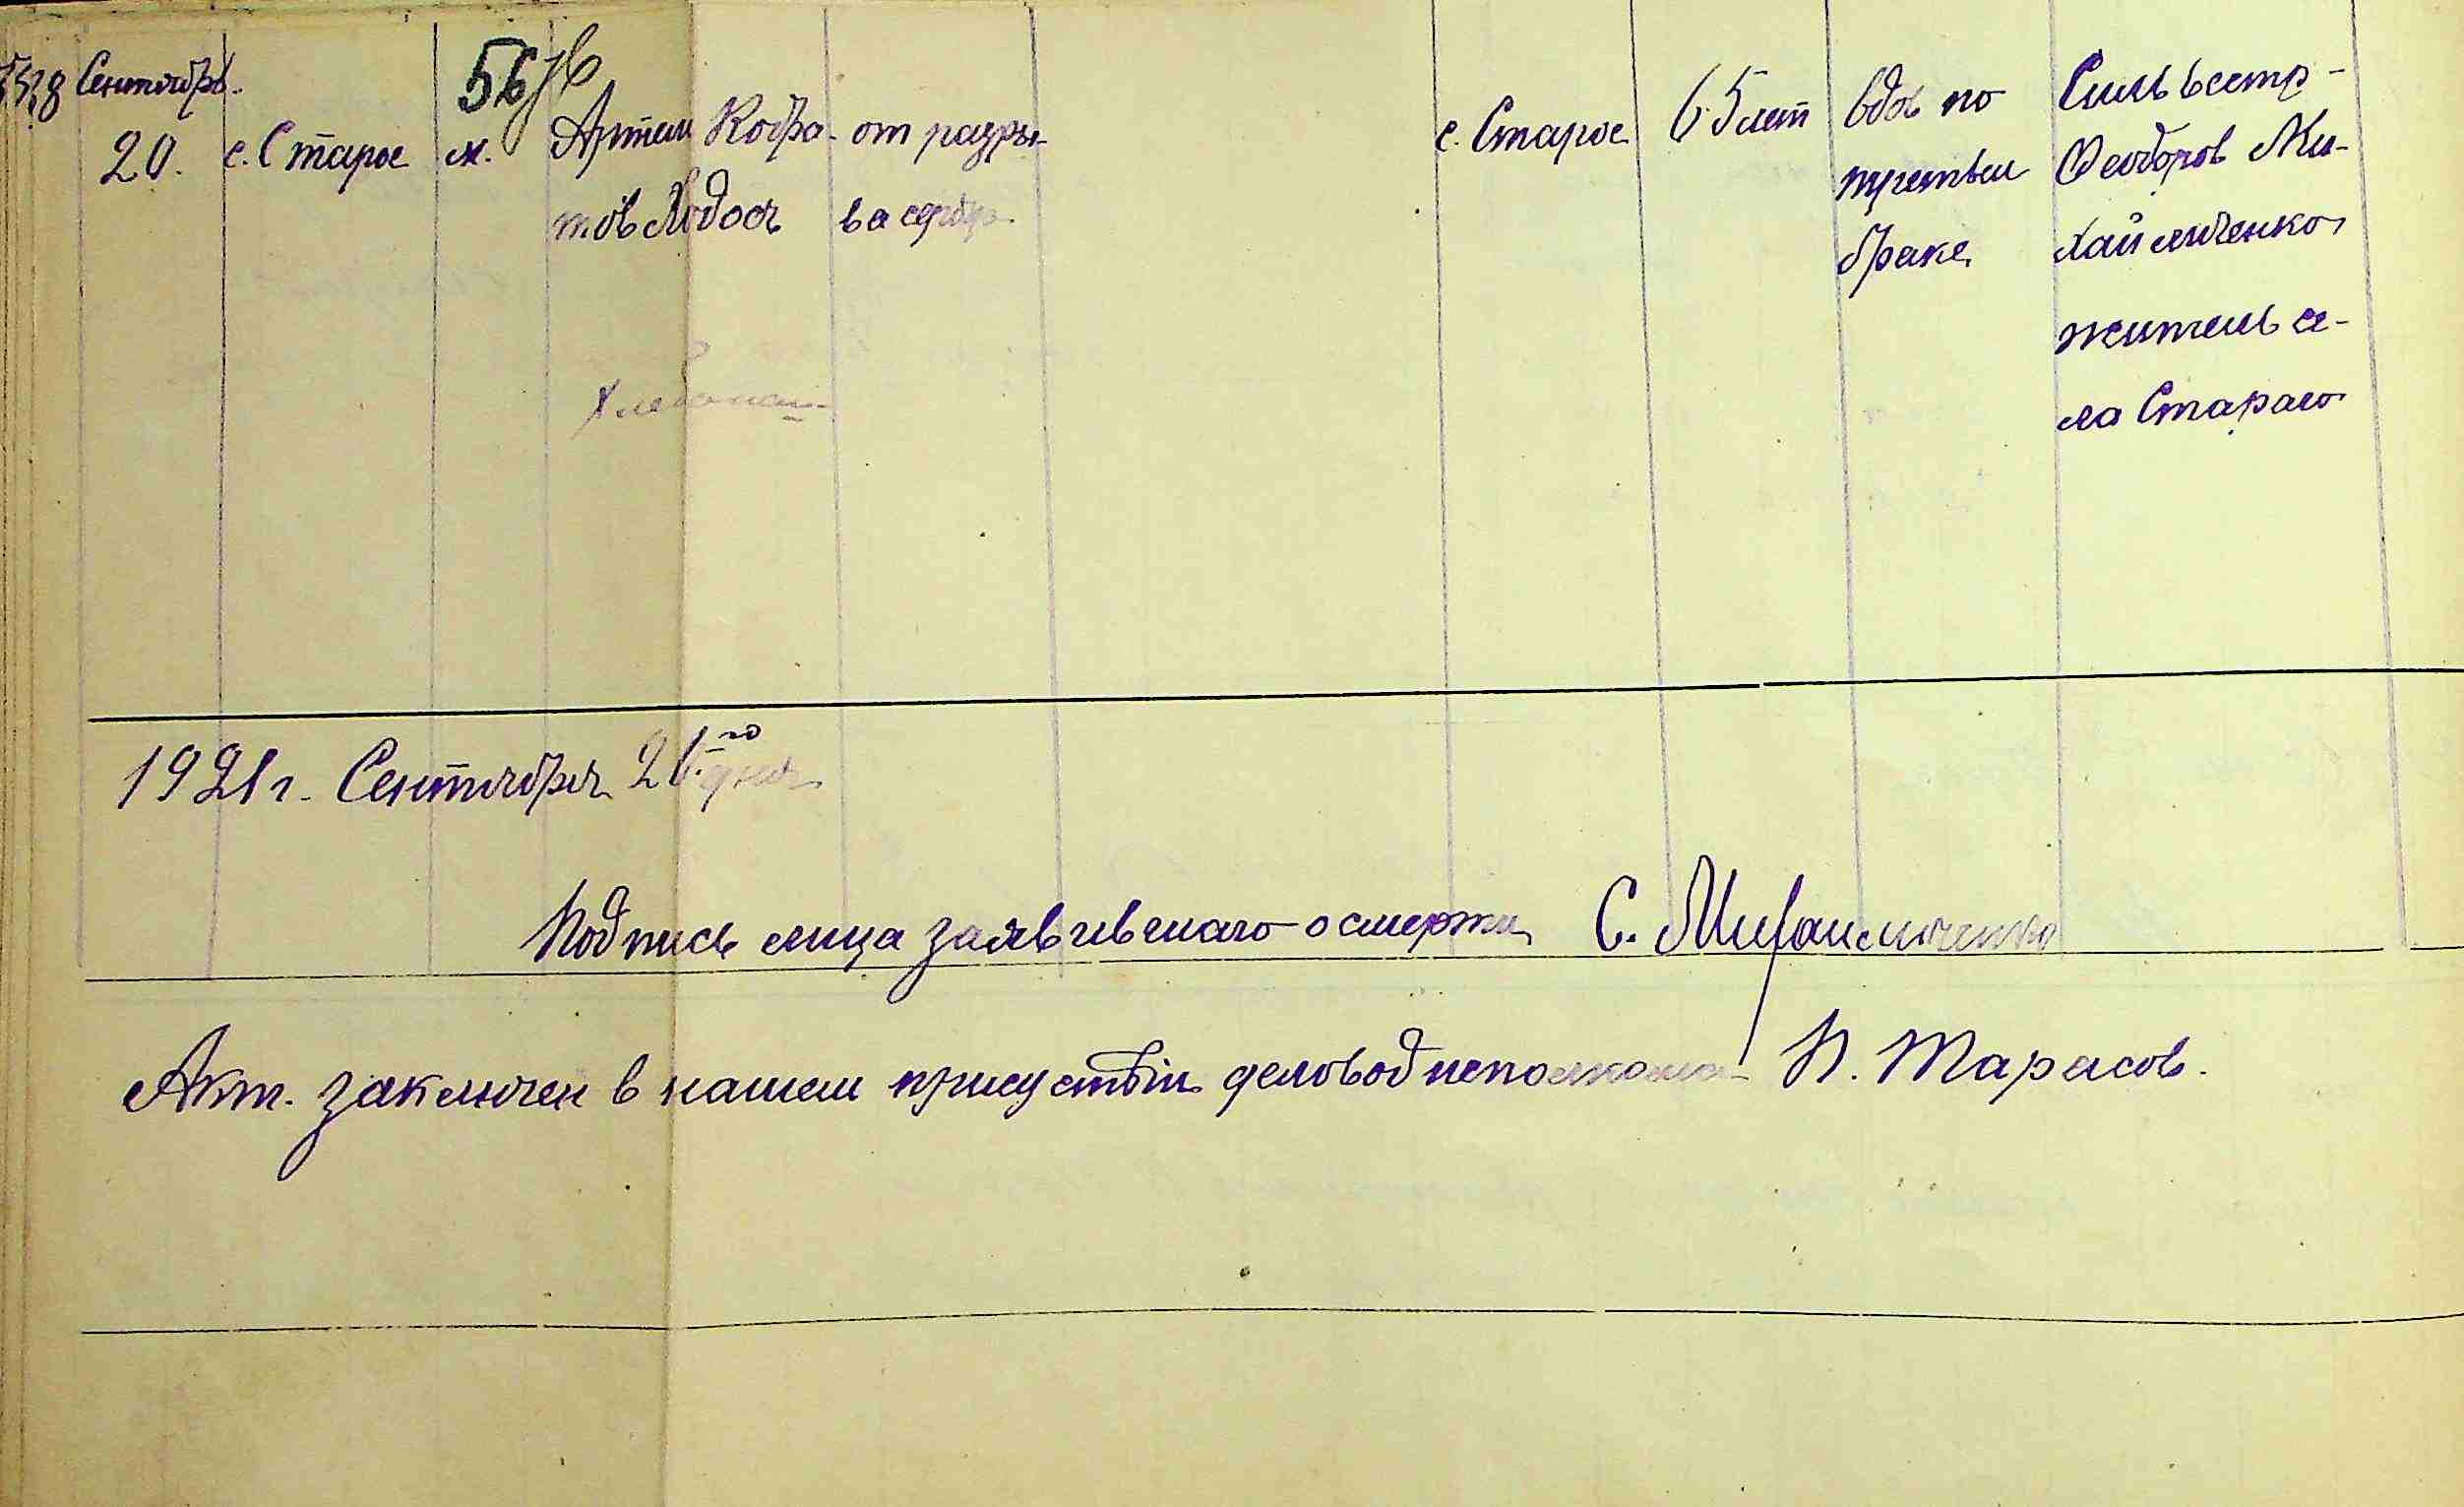 Сентябрь.
20.
с. Старое
56
м.
Артем Кодра-
тов Ходос
Хлебопаш-
от разры-
ва сердца
с. Старое
65 лет
вдов по
третьем
браке
Сильвестр-
Феодоров Ми-
хайличенко
житель се-
ла Стараго
1921 г. Сентября 21го дня
Подпись лица заявившаго о смерти С. Михайличенко
Акт. заключен в нашем присуствіи деловод исполкома П. Тарасов.